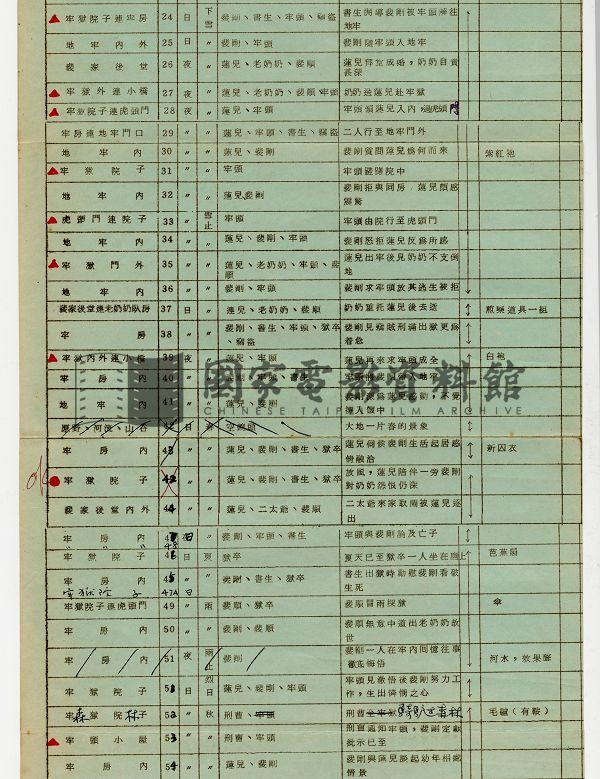 牢獄院子連牢房 24 日 下雪 裴剛、書生、牢頭、竊盜 書生 裴剛被牢頭 地牢
地牢內外 25 日 〃 裴剛、牢頭 裴剛隨牢頭入地牢
裴家後堂 26 夜 〃 蓮兒、老奶奶、裴順
牢獄外連小橋 27 夜 〃 蓮兒、老奶奶、裴順、牢頭 奶奶送蓮兒赴牢獄
牢獄院子連虎頭門 28 夜 〃 蓮兒、牢頭 牢頭領蓮兒入內
牢房連地牢門口 29 〃 〃 蓮兒、牢頭、書生、竊盜 二人行至地牢門外
地牢內 30 〃 〃 蓮兒、裴剛 裴剛質問蓮兒為何而來 紫紅袍
牢獄院子 31 〃 〃 牢頭 牢頭 院中
地牢內 32 〃 〃 蓮兒、裴剛 裴剛拒與同房,蓮兒
虎頭門連院子 33 〃 雪止 牢頭 牢頭由院行至虎頭門
地牢內 34 〃 〃 蓮兒、裴剛、牢頭 裴剛怒拒蓮兒反為所感
牢獄門外 35 〃 〃 蓮兒、老奶奶、牢頭、裴順 蓮兒出牢後見奶奶不支倒地
地牢內 36 〃 〃 裴剛、牢頭 裴剛求牢頭放其逃生被拒
裴家後堂連老奶奶臥房 37 日 〃 蓮兒、老奶奶、裴順 奶奶重托蓮兒後去逝 煎藥道具一組
牢房 38 〃 〃 裴剛、書生、牢頭、獄卒、竊盜 裴剛見竊賊刑滿出獄更為着急
牢獄內外連小橋 39 夜 〃 蓮兒、牢頭 蓮兒再來求牢頭成全 白袍
牢房內 40 〃 〃 裴剛、牢頭、書生
地牢內 41 〃 〃 蓮兒、裴剛
原野、河流、山谷 日 春 空鏡頭 大地一片春的景象
牢房內 〃 〃 蓮兒、裴剛、書生、獄卒 蓮兒伺候裴剛生活起居感情融洽 新囚衣
牢獄院子 42 〃 〃 蓮兒、裴剛、書生、獄卒 放風,蓮兒陪伴一旁裴剛對奶奶怨恨仍深
裴家後堂內外 44 〃 〃 蓮兒、二太爺、裴順 二太爺來家取鬧被蓮兒逐出
牢房內 夜 日 〃 裴剛、牢頭、書生 牢頭與裴剛論及亡子
牢獄院子 日 夏 獄卒 夏天已至獄卒一人坐在 芭蕉扇
牢房內 〃 〃 裴剛、書生、獄卒 書生出獄時勸慰裴剛看破生死
牢獄院子 47A 日
牢獄院子連虎頭門 49 〃 雨 裴順、獄卒 裴順冒雨探獄 傘
牢房內 50 〃 〃 裴剛、裴順 裴順無意中道出老奶奶故世
牢房內 51 夜 雨止 裴剛 裴剛一人在牢內回憶往事徹底悔悟 河水,效果聲
牢獄院子 日 烈日 蓮兒、裴剛、牢頭 牢頭見徹悟後裴剛努力工作,生出憐憫之心
牢獄院子 森林 〃 秋 刑曹、牢頭 刑曹 森林 毛驢(有鞍)
牢頭小屋 〃 〃 刑曹、牢頭 刑曹通知牢頭,裴剛定獻批示已至
牢房內 〃 〃 蓮兒、裴剛 裴剛與蓮兒談起幼年相處情景
國家電影資料館
CHINESE TAIPEI FILM ARCHIVE